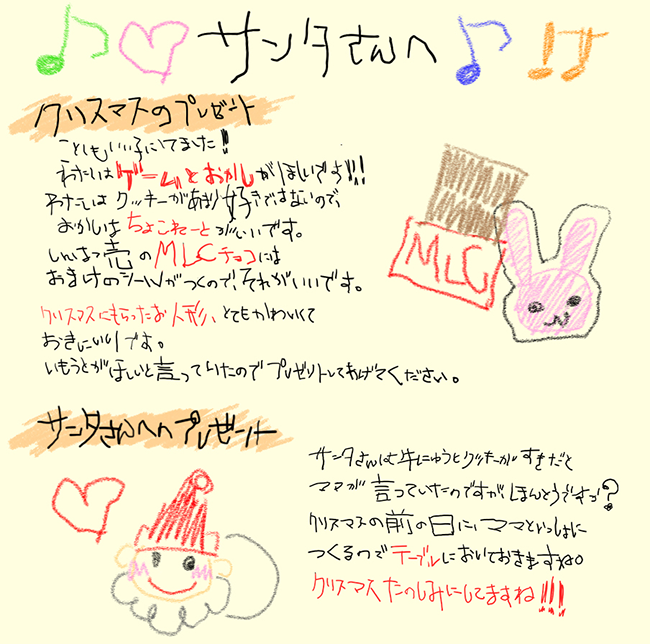 サンタさんへ
クリスマスのプレゼント
ことしもいい子にしてました!
わたしはゲームとおかしがほしいです!!
わたしはクッキーがあまり好きではないので、
おかしはちょこれーとがいいです。
しんはつ売のMLCチョコには
おまけのシールがつくので、それがいいです。
MLC
クリスマスにもらったお人形、とてもかわいくて
おきにいりですよ。
いもうとがほしいと言っていたのでプレゼントしてあげてください。
サンタさんへのプレゼント
サンタさんは牛にゅうとクッキーがすきだと
ママが言っていたのですが、ほんとうですか?
クリスマスの前の日に、ママといっしょに
つくるのでテーブルにおいておきますね。
クリスマスたのしみにしてますね!!!